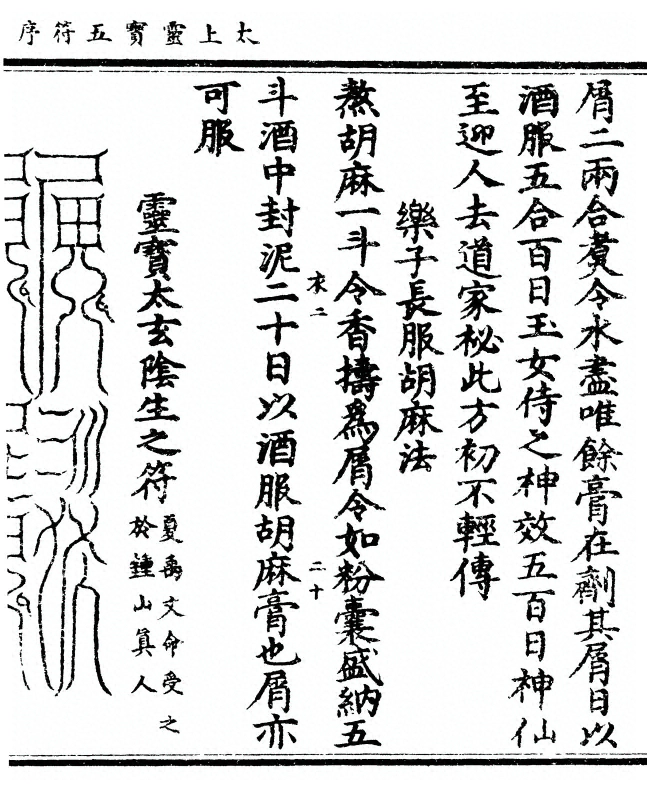 太上靈寶五符序
屑二兩合煑令水盡唯餘膏在劑其屑日以
酒服五合百日玉女侍之神效五百日神仙
至迎人去道家祕此方初不輕傳
樂子長服胡麻法
熬胡麻一斗令香擣為屑令如粉囊盛納五
衣二
二十
斗酒中封泥二十日以酒服胡麻膏也屑亦
可服
靈寶太玄陰生之符
夏禹文命受之
於鍾山真人